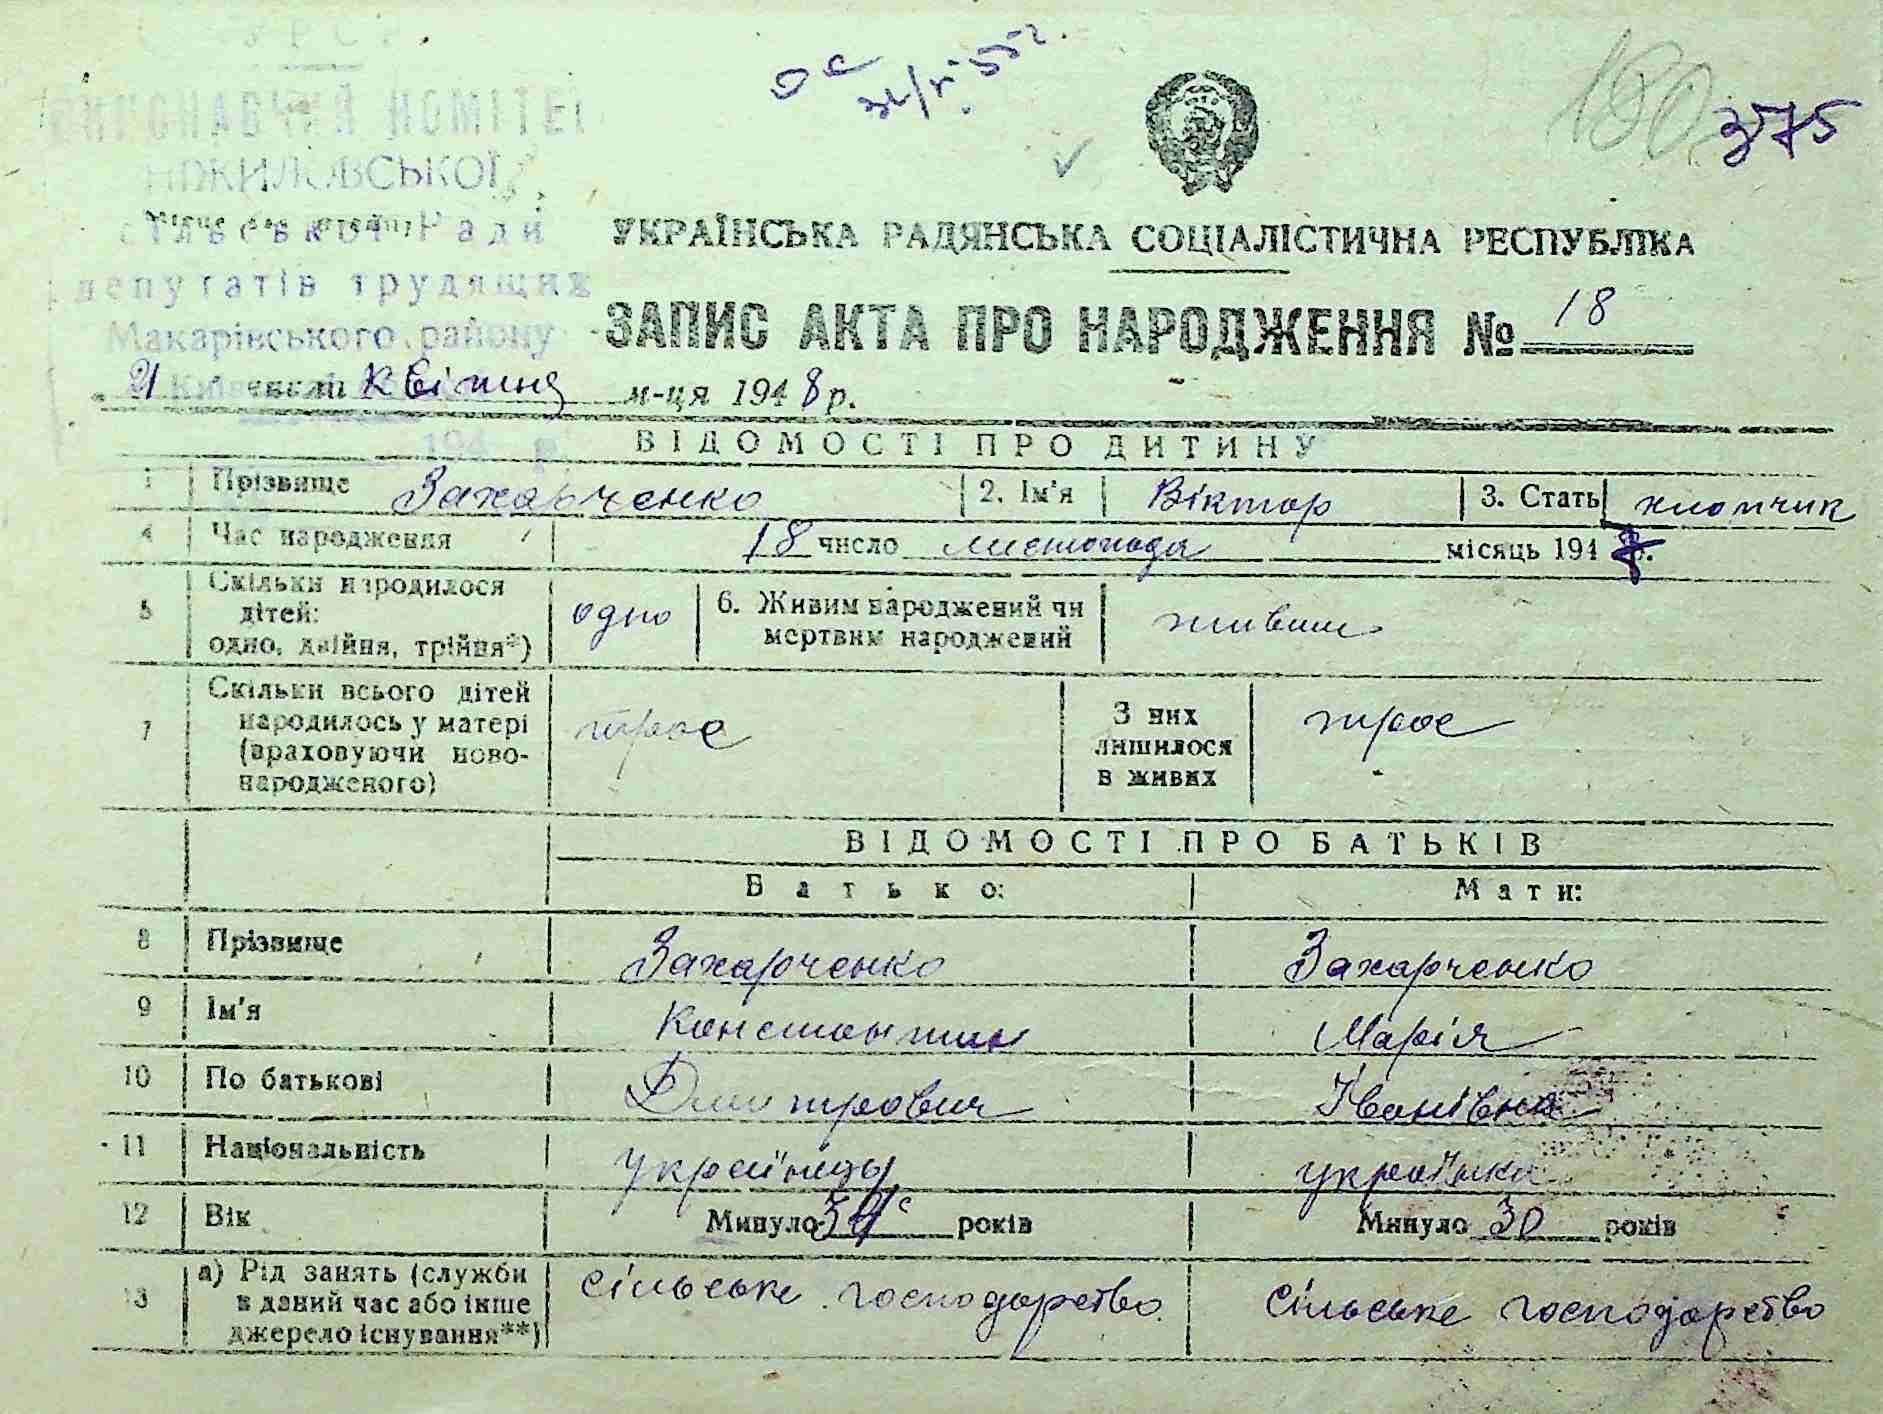 ВИКОНАВЧИЙ КОМІТЕТ
сільської Ради
депутатів трудящих
Макарівського району
194 р.
375
УКРАЇНСЬКА РАДЯНСЬКА СОЦІАЛІСТИЧНА РЕСПУБЛІКА
ЗАПИС АКТА ПРО НАРОДЖЕННЯ № 18
21 квітня м-ця 1948 р.
ВІДОМОСТІ ПРО ДИТИНУ
1 Прізвище Захарченко 2. Ім'я Віктор 3. Стать хлопчик
4 Час народження 18 число листопада місяць 1947 р.
5 Скільки народилося дітей: одно, двійня, трійня*) одно 6. Живим народжений чи мертвим народжений живим
7 Скільки всього дітей народилось у матері (враховуючи ново-народженого) троє З них лишилося в живих троє
ВІДОМОСТІ ПРО БАТЬКІВ
Батько: Мати:
8 Прізвище Захарченко Захарченко
9 Ім'я Константин Марія
10 По батькові Дмитрович Іванівна
11 Національність українець українка
12 Вік Минуло 34 років Минуло 30 років
13 а) Рід занять (служби в даний час або інше джерело існування**) сільське господарство сільське господарство